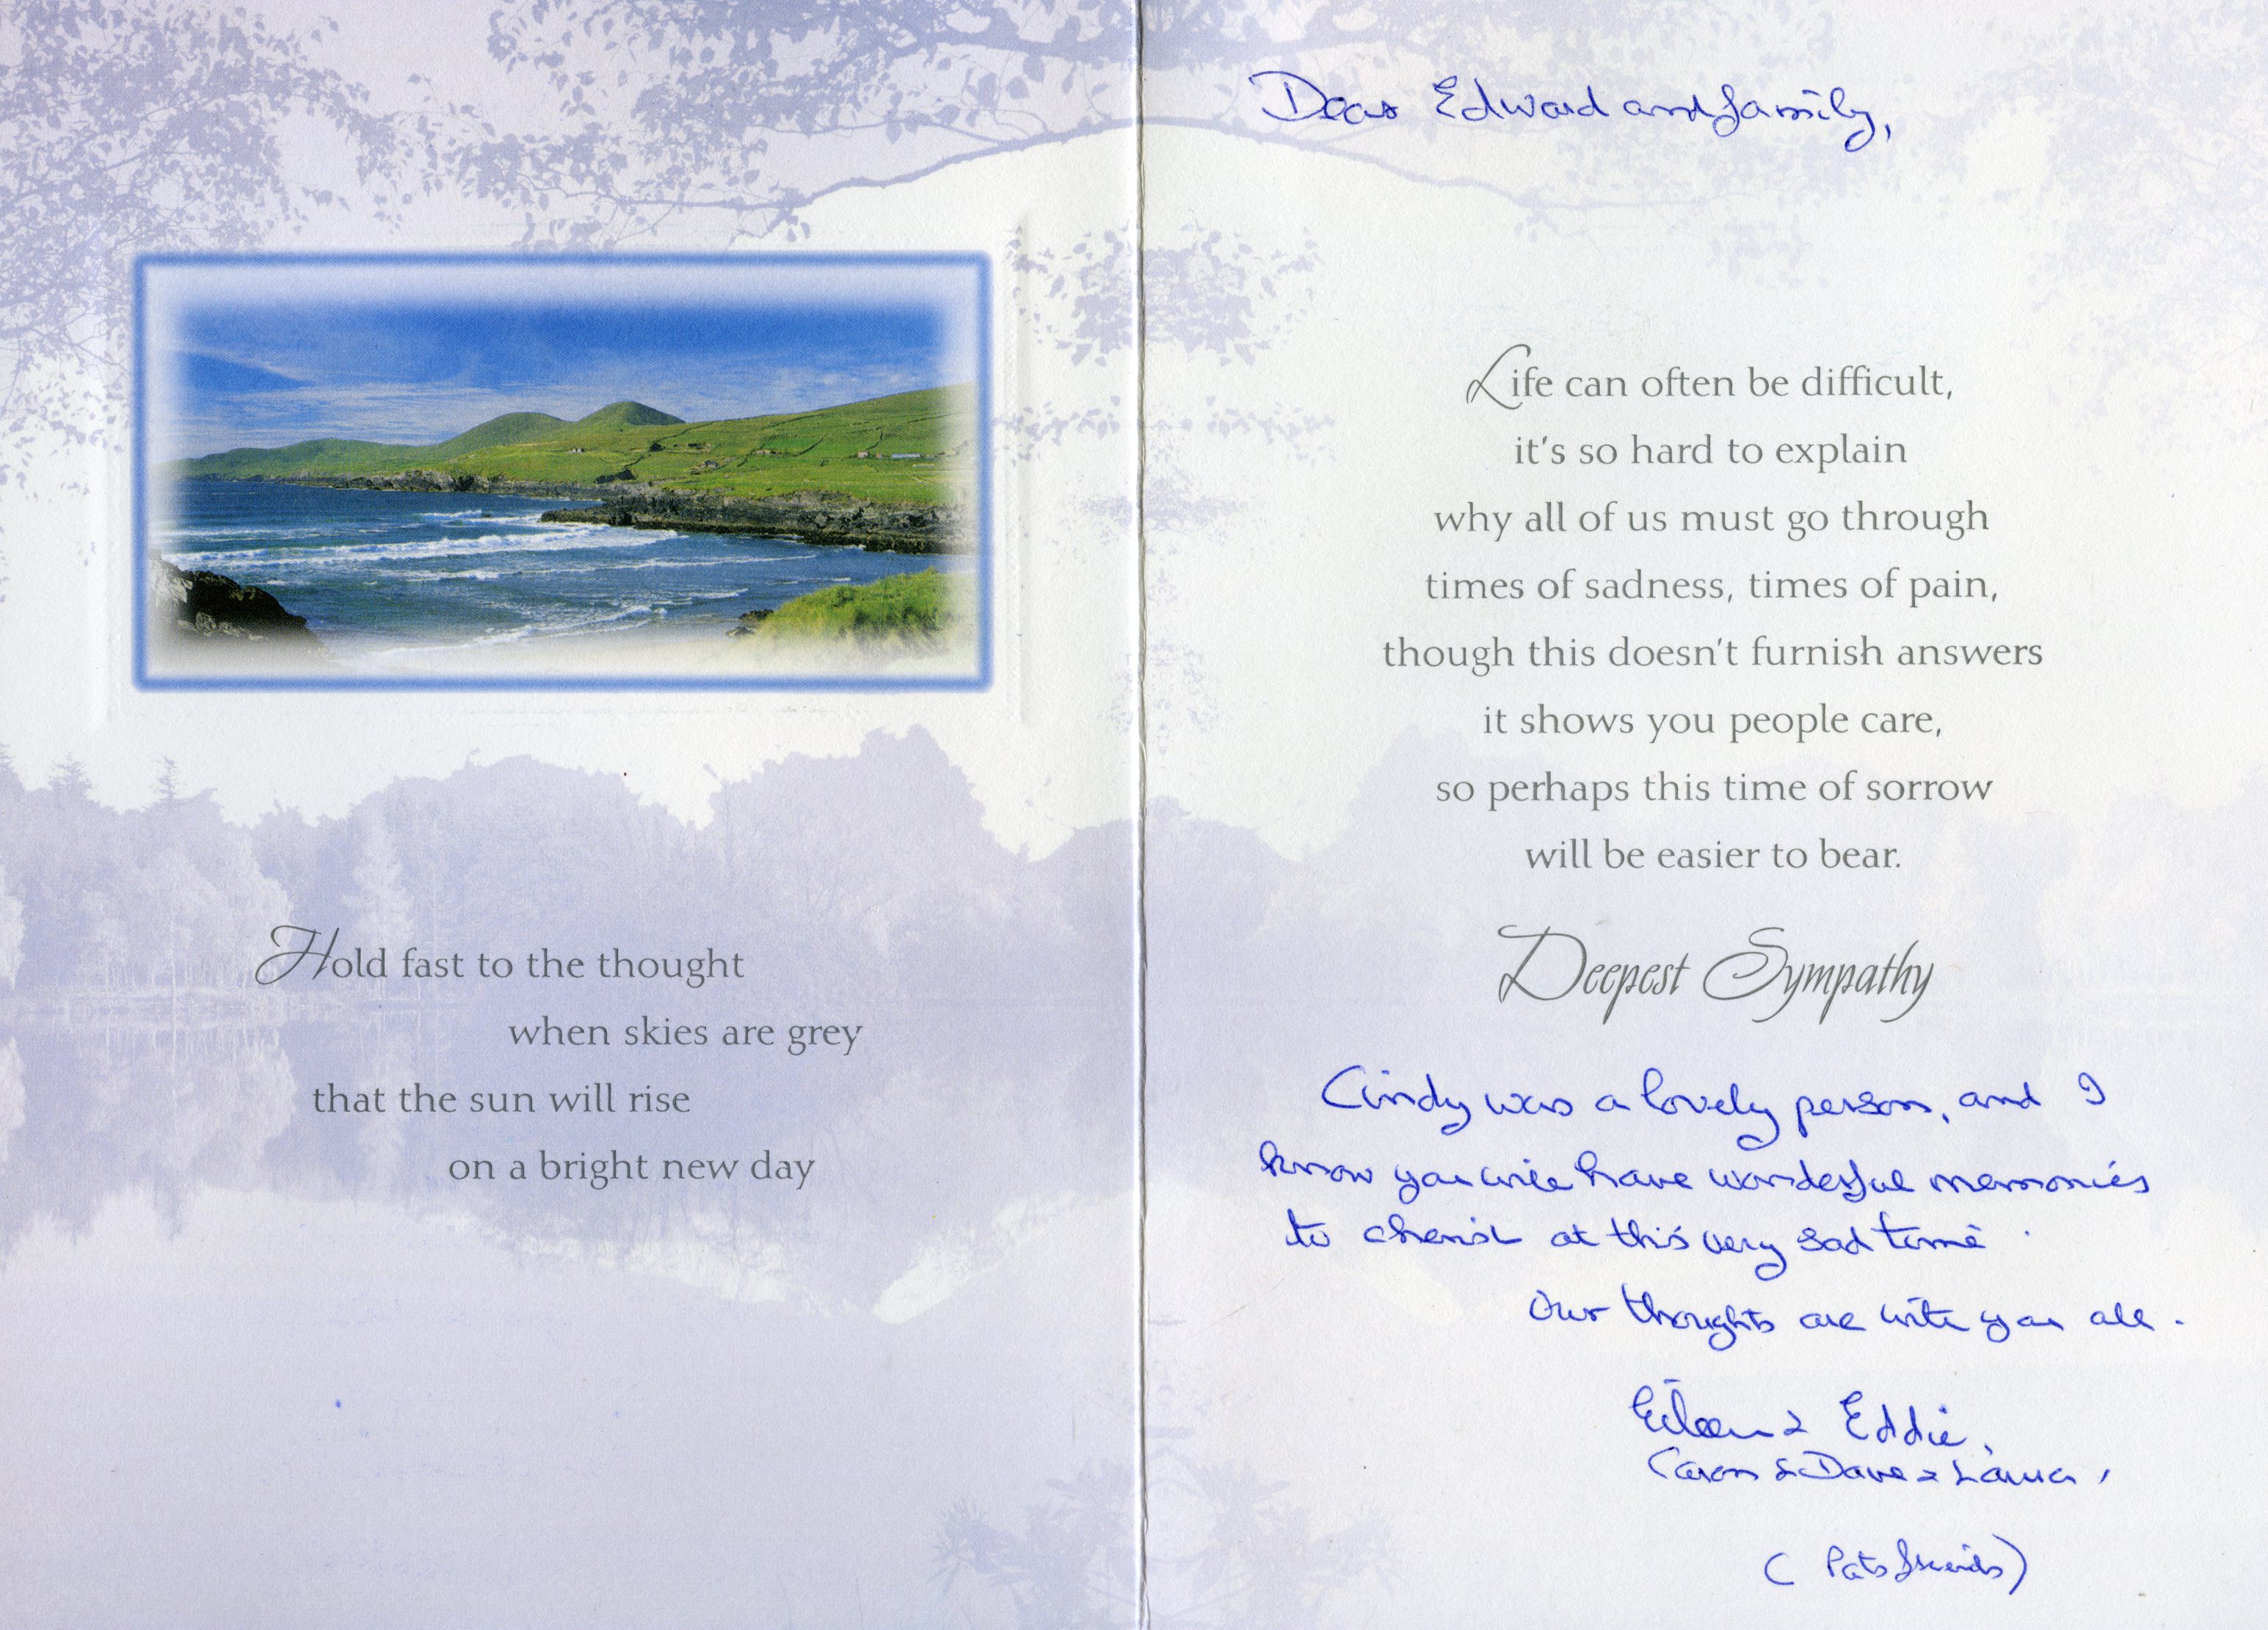 Hold fast to the thought
when skies are grey
that the sun will rise
on a bright new day
Dear Edward and family,
Life can often be difficult,
it's so hard to explain
why all of us must go through
times of sadness, times of pain,
though this doesn't furnish answers
it shows you people care,
so perhaps this time of sorrow
will be easier to bear.
Deepest Sympathy
Cindy was a lovely person, and I
know you will have wonderful memories
to cherish at this very sad time.
Our thoughts are with you all.
Eileen & Eddie,
& Dave & Laura,
(Pats friends)